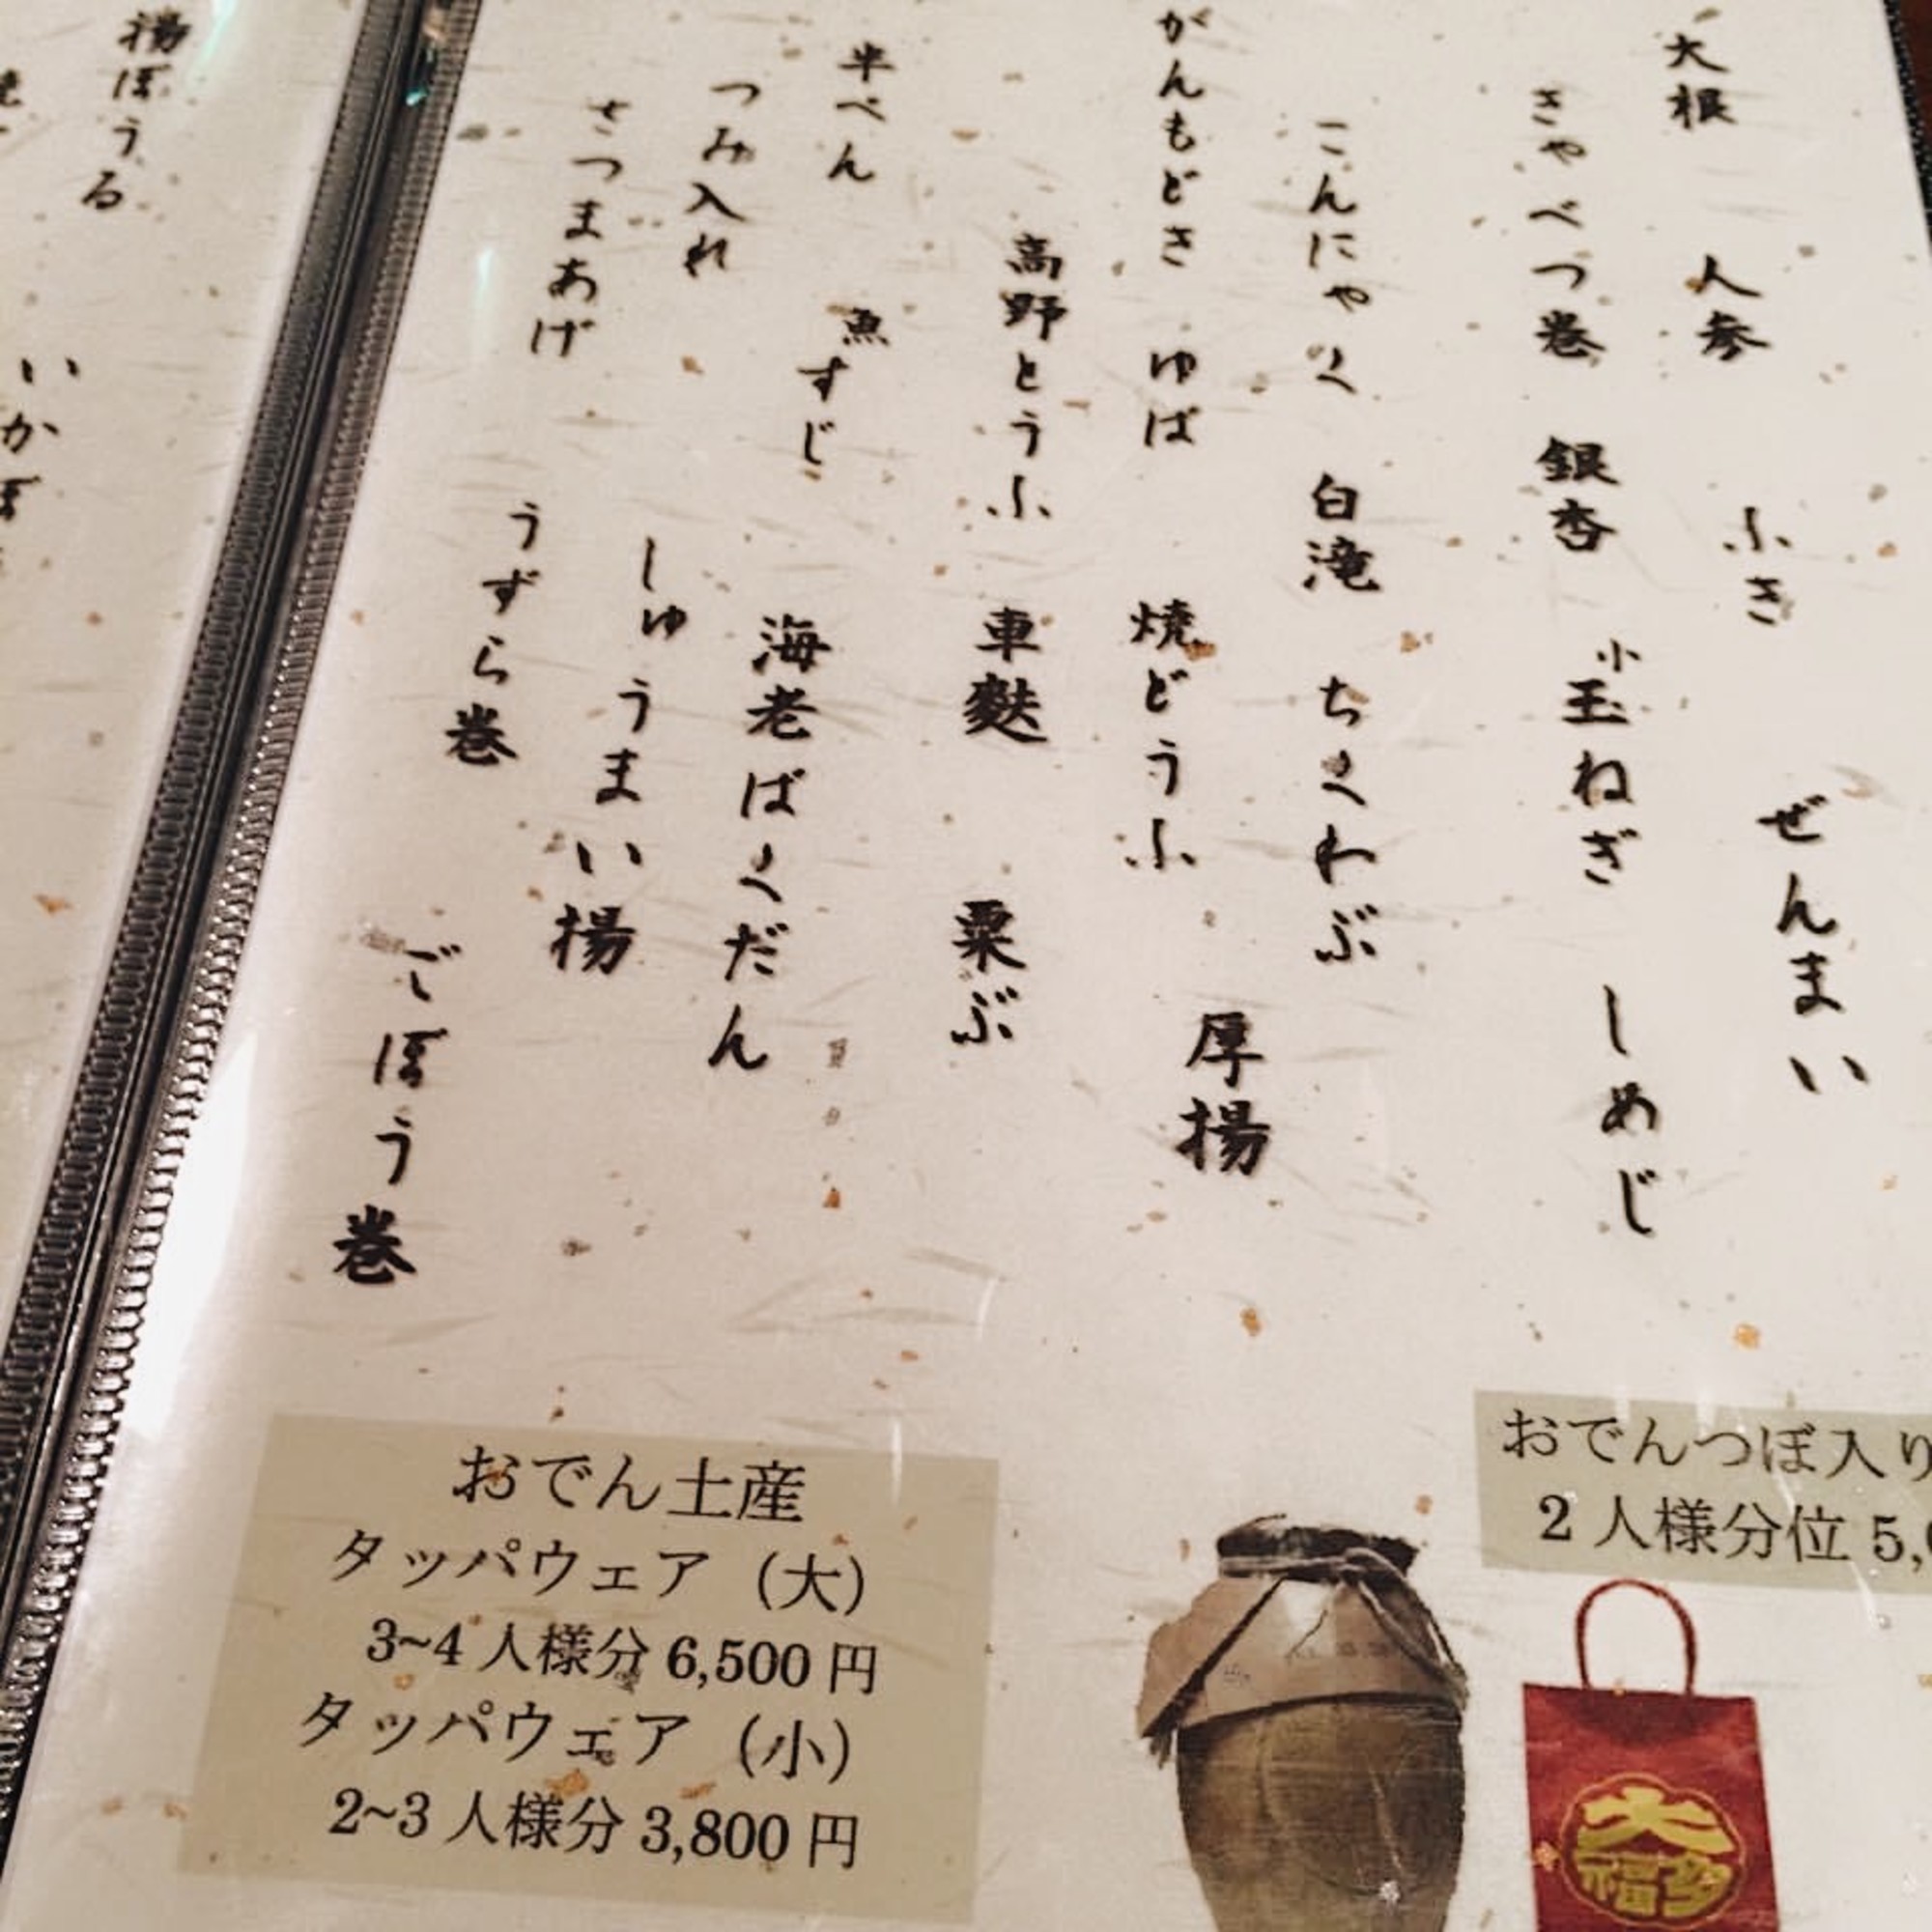 大根　人参　ふき　ぜんまい
きゃべつ巻　銀杏　小玉ねぎ　しめじ
こんにゃく　白滝　ちくわぶ
がんもどき　ゆば　焼どうふ　厚揚
高野とうふ　車麩　粟ぶ
半ぺん　魚すじ　海老ばくだん
つみ入れ　しゅうまい揚
さつまあげ　うずら巻　ごぼう巻
揚ぼうる　いかぼ
おでんつぼ入り
2人様分位 5,
おでん土産
タッパウェア（大）
3~4人様分 6,500円
タッパウェア（小）
2~3人様分 3,800円
大
福多